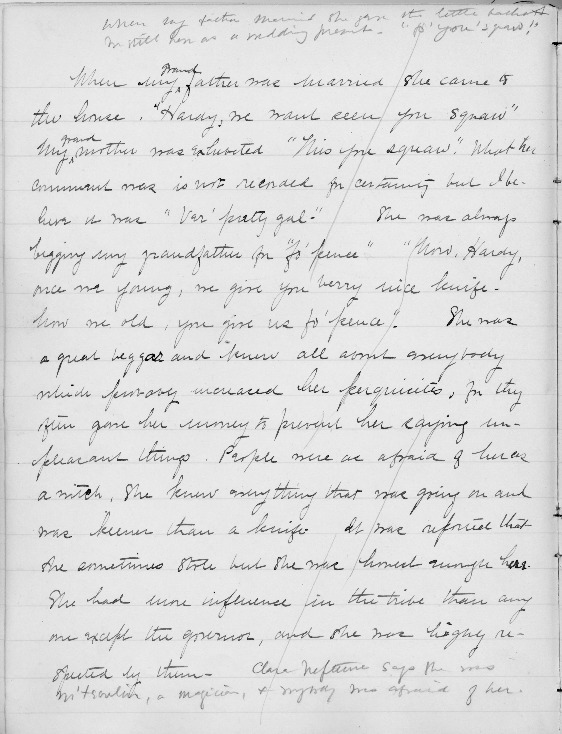 When my father married she gave the little basket
we still have as a wedding present. "fo' you' squaw!"
When my grand father was married she came to
the house. "Hardy, me want seen you squaw"
My grand mother was exhibited "This you squaw". What her
comment was is not recorded for certainty but I be-
lieve it was "Ver' pretty gal." She was always
begging my grandfather for "fo' pence" "Now, Hardy,
once me young, me give you berry nice knife.
Now me old, you give us fo' pence". She was
a great beggar and knew all about everybody
which probably increased her perquisites, for they
often gave her money to prevent her saying un-
pleasant things. People were as afraid of her as
a witch. She knew everything that was going on and
was keener than a knife. It was reported that
she sometimes stole but she was honest enough here.
She had more influence in the tribe than any
one except the governor, and she was highly re-
spected by them. Clara Neptune says she was
m'teoulin, a magician, & everybody was afraid of her.